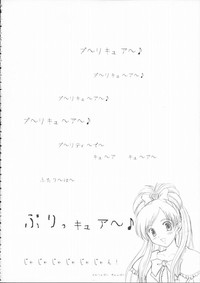 プ〜リキュア〜♪
プ〜リキュア〜♪
プ〜リキュア〜♪
プ〜リキュア〜♪
プ〜リティ〜イ〜
キュ〜ア キュ〜ア〜
ふたり〜は〜
ぷりっキュア〜♪
じゃじゃじゃじゃじゃん!